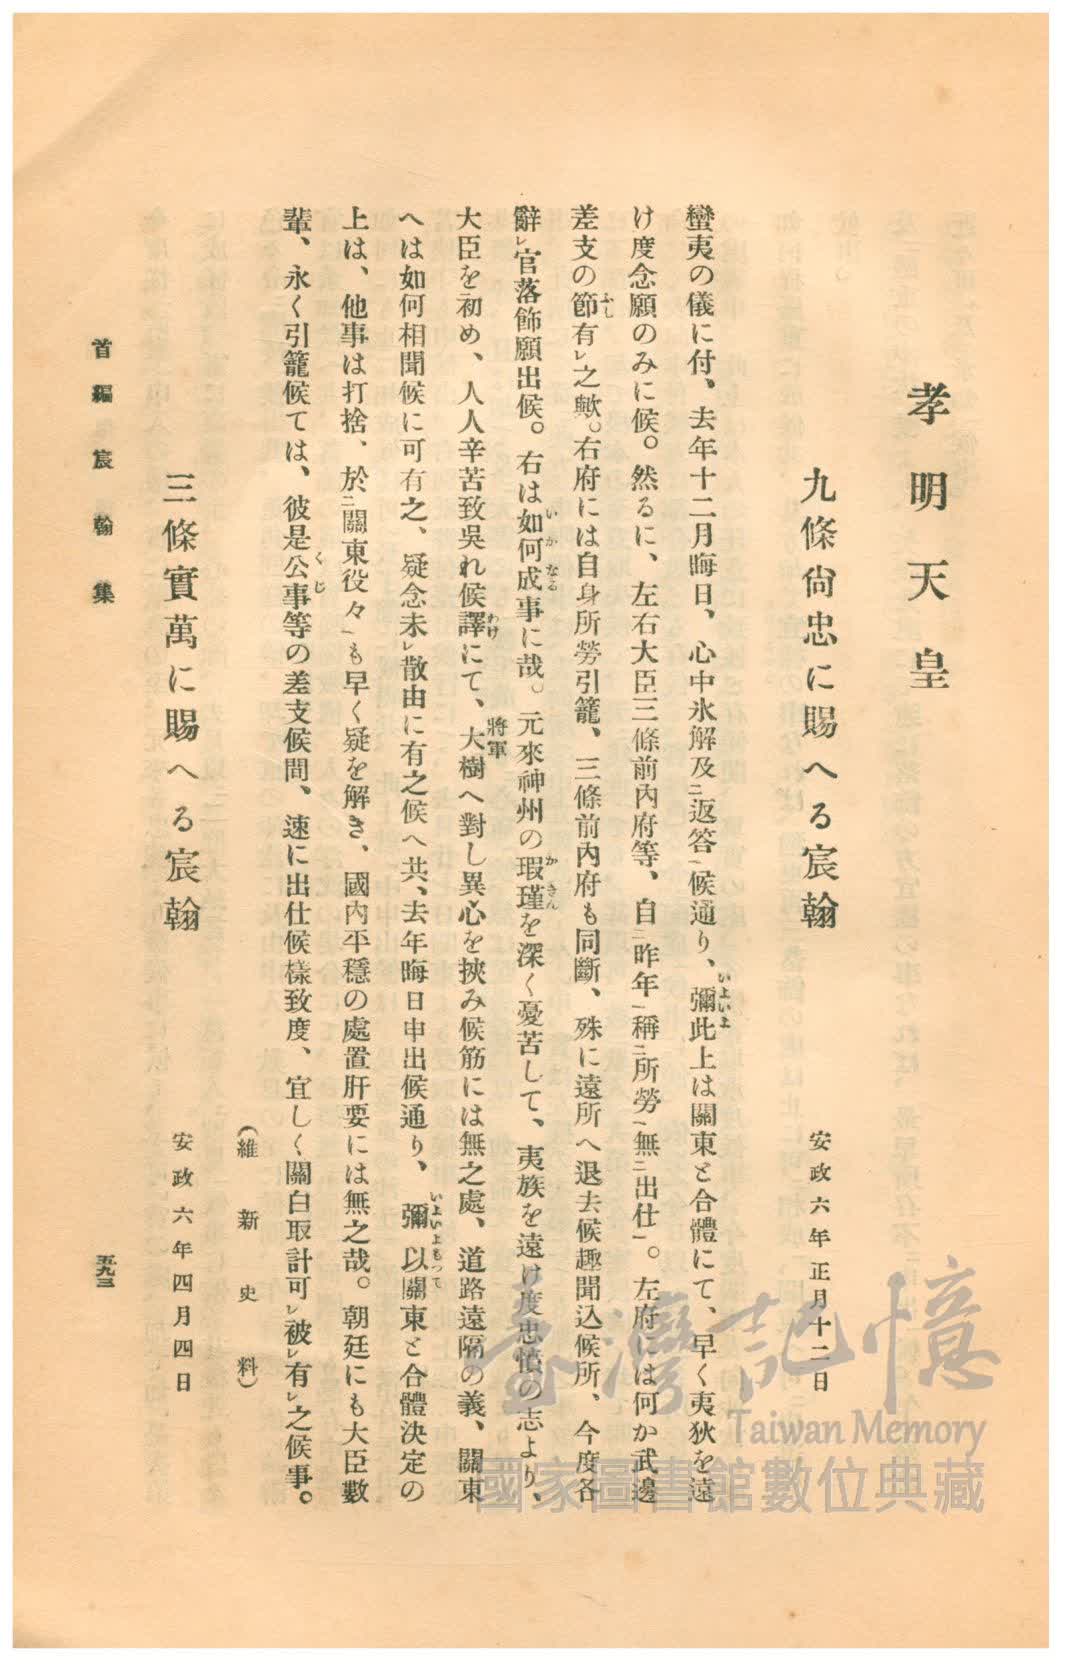 孝明天皇
九條尙忠に賜へる宸翰
安政六年正月十二日
蠻夷の儀に付、去年十二月晦日、心中氷解及ニ返答一候通り、彌此上は關東と合體にて、早く夷狄を遠
いよいよ
け度念願のみに候。然るに、左右大臣三條前內府等、自ニ昨年一稱ニ所勞一無ニ出仕一。左府には何か武邊
差支の節有レ之歟。右府には自身所勞引籠、三條前內府も同斷、殊に遠所へ退去候趣聞込候所、今度各
ふし
辭レ官落飾願出候。右は如何成事に哉。元來神州の瑕瑾を深く憂苦して、夷族を遠け度忠憤の志より、
いかなる
かきん
大臣を初め、人人辛苦致吳れ候譯にて、大樹へ對し異心を挾み候筋には無之處、道路遠隔の義、關東
わけ
將軍
へは如何相聞候に可有之、疑念未レ散由に有之候へ共、去年晦日申出候通り、彌以關東と合體決定の
いよいよもつて
上は、他事は打捨、於ニ關東役々一も早く疑を解き、國內平穩の處置肝要には無之哉。朝廷にも大臣數
輩、永く引籠候ては、彼是公事等の差支候間、速に出仕候樣致度、宜しく關白取計可レ被レ有レ之候事。
くじ
（維新史料）
三條實萬に賜へる宸翰
安政六年四月四日
首編 宸翰集
五九三
臺灣記憶
Taiwan Memory
國家圖書館數位典藏